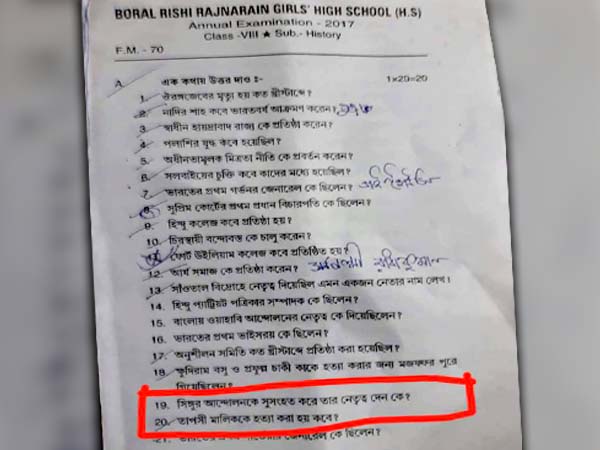 BORAL RISHI RAJNARAIN GIRLS' HIGH SCHOOL (H.S)
Annual Examination - 2017
Class -VIII ★ Sub.- History
F.M. - 70
A. এক কথায় উত্তর দাও :- 1×20=20
1. ঔরঙ্গজেবের মৃত্যু হয় কত খ্রীস্টাব্দে?
2. নাদির শাহ কবে ভারতবর্ষ আক্রমণ করেন?
3. স্বাধীন হায়দ্রাবাদ রাজ্য কে প্রতিষ্ঠা করেন?
4. পলাশির যুদ্ধ কবে হয়েছিল?
5. অধীনতামূলক মিত্রতা নীতি কে প্রবর্তন করেন?
6. সলবাইয়ের চুক্তি কবে কাদের মধ্যে হয়েছিল?
7. ভারতের প্রথম গভর্নর জেনারেল কে ছিলেন?
8. সুপ্রিম কোর্টের প্রথম প্রধান বিচারপতি কে ছিলেন?
9. হিন্দু কলেজ কবে প্রতিষ্ঠা হয়?
10. চিরস্থায়ী বন্দোবস্ত কে চালু করেন?
11. ফোর্ট উইলিয়াম কলেজ কবে প্রতিষ্ঠিত হয়?
12. আর্য সমাজ কে প্রতিষ্ঠা করেন?
13. সাঁওতাল বিদ্রোহে নেতৃত্ব দিয়েছিল এমন একজন নেতার নাম লেখ।
14. হিন্দু প্যাট্রিয়ট পত্রিকার সম্পাদক কে ছিলেন?
15. বাংলায় ওয়াহাবি আন্দোলনের নেতৃত্ব কে দিয়েছিলেন?
16. ভারতের প্রথম ভাইসরয় কে ছিলেন?
17. অনুশীলন সমিতি কত খ্রীস্টাব্দে প্রতিষ্ঠা করা হয়েছিল?
18. ক্ষুদিরাম বসু ও প্রফুল্ল চাকী কাকে হত্যা করার জন্য মজফফর পুরে
গিয়েছিলেন?
19. সিঙ্গুর আন্দোলনকে সুসংহত করে তার নেতৃত্ব দেন কে?
20. তাপসী মালিককে হত্যা করা হয় কবে?
21. ভারতের প্রথম গভর্নর জেনারেল কে ছিলেন?